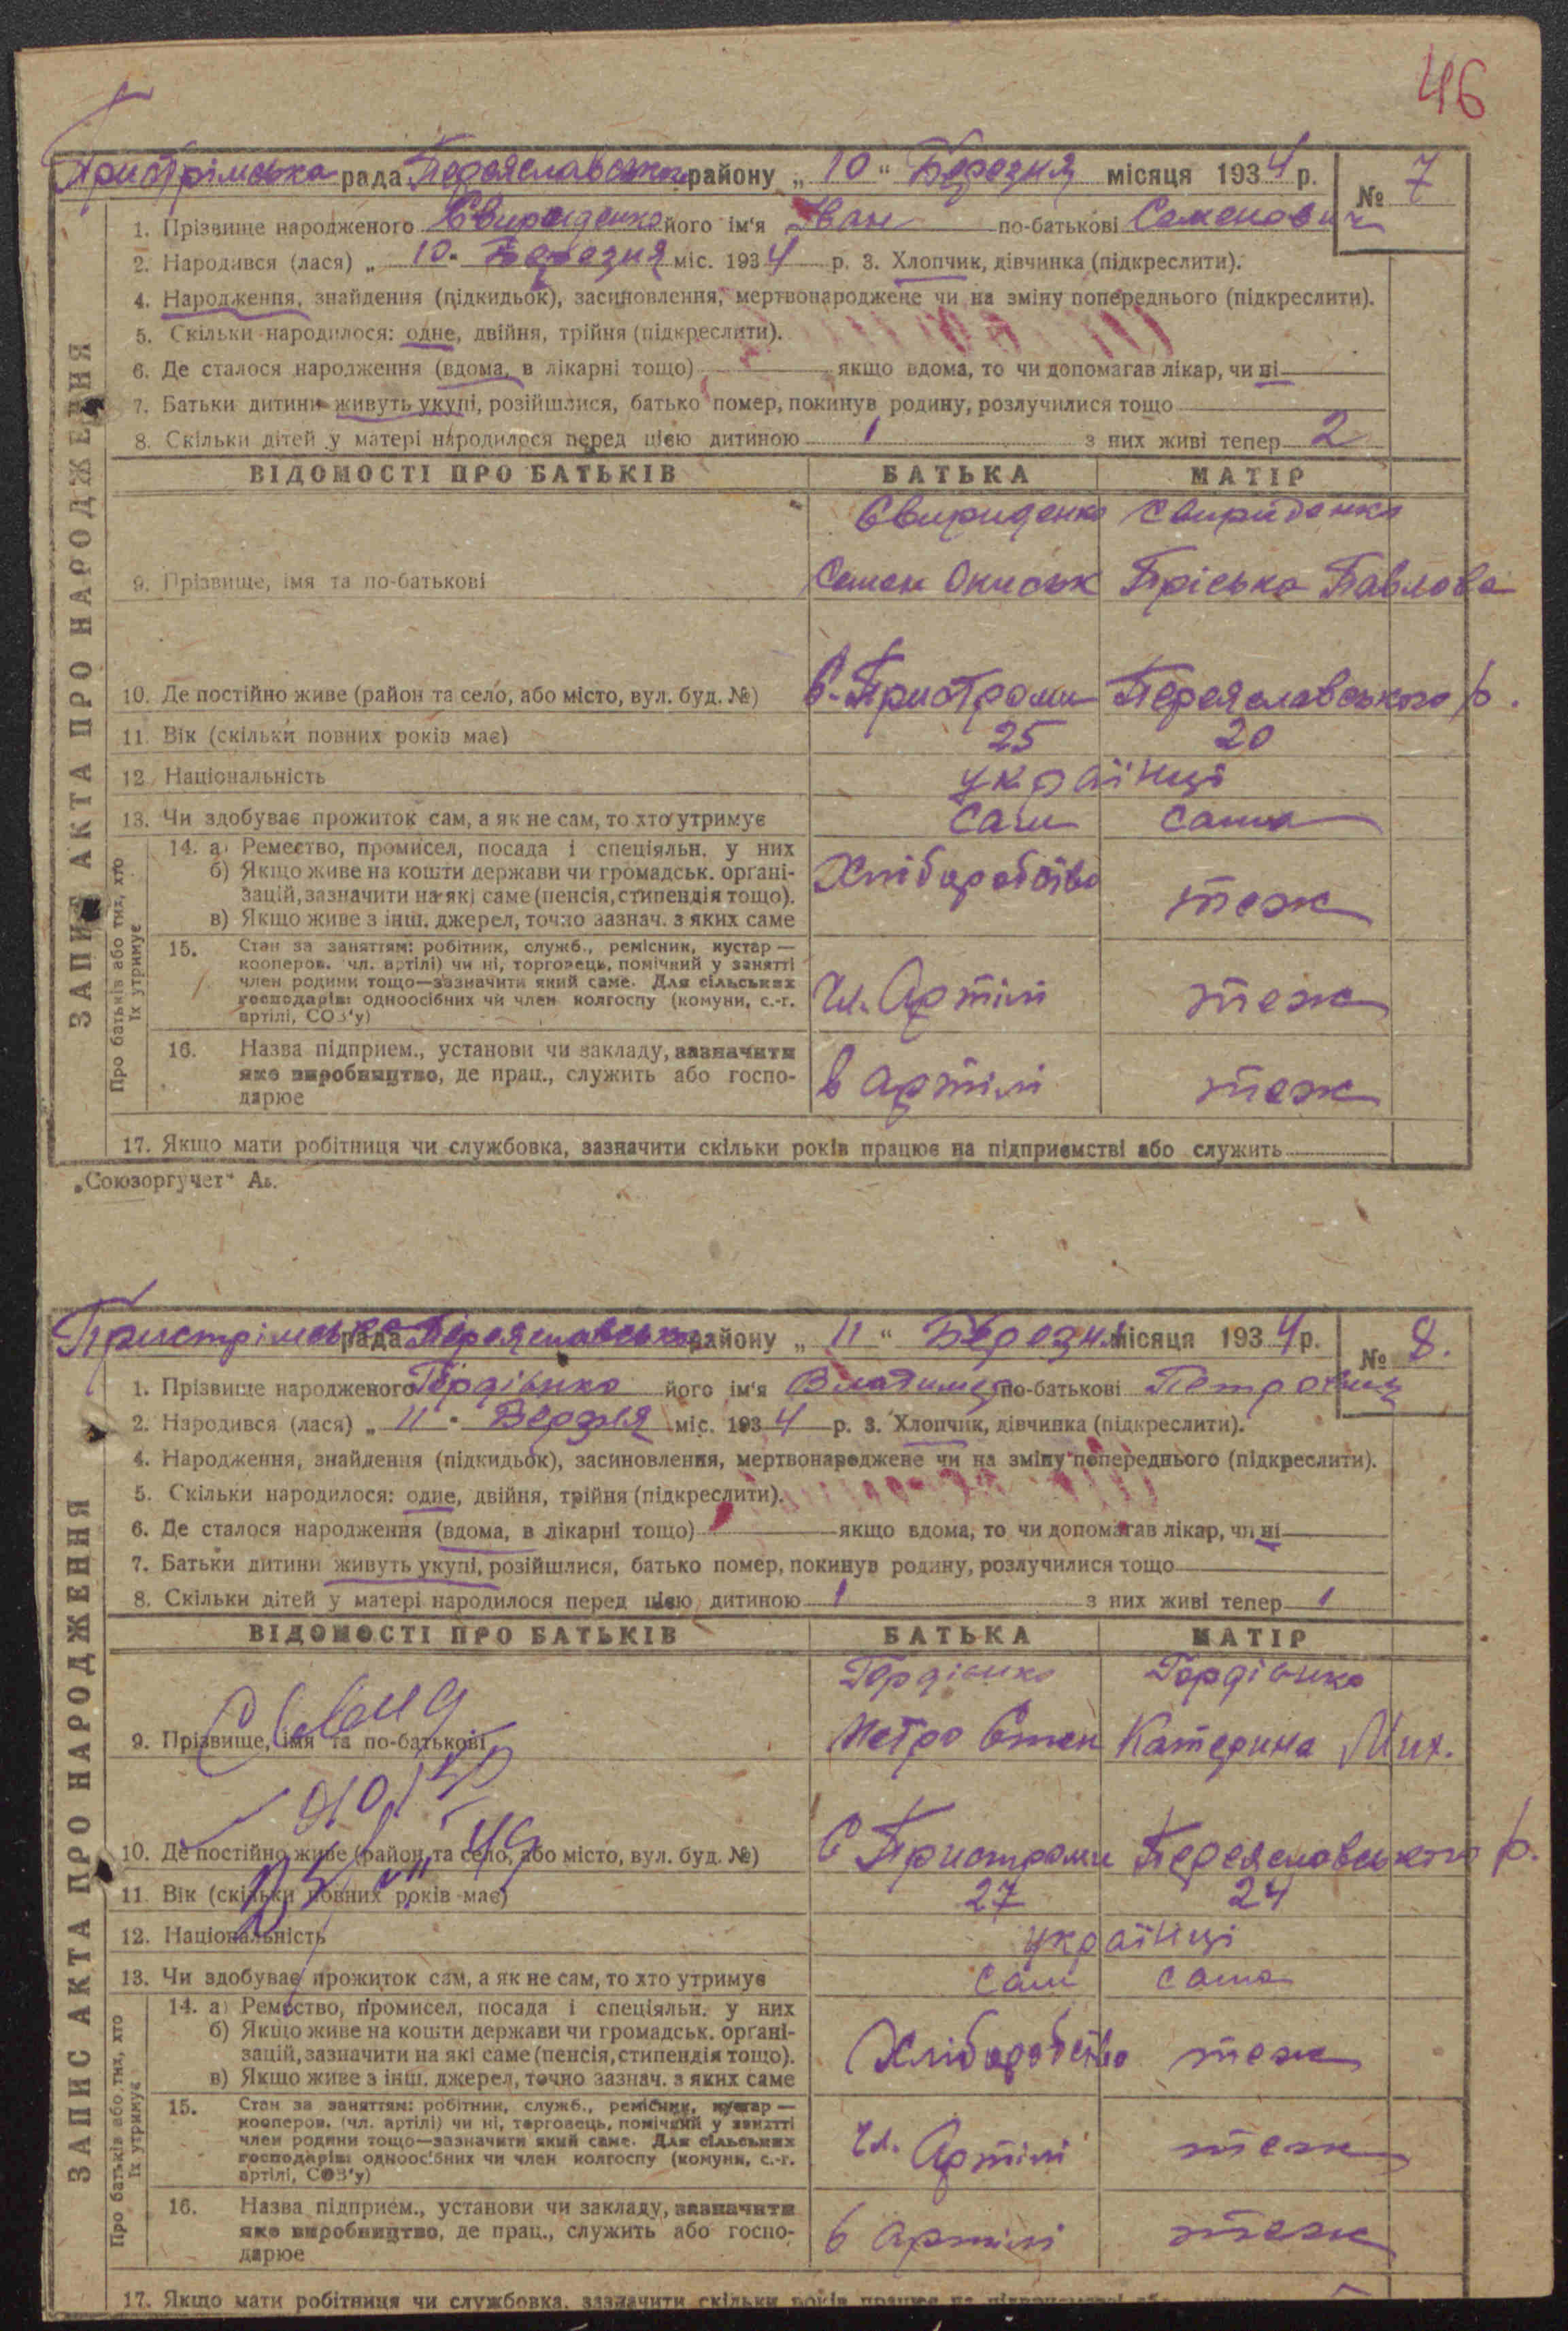 46
Пристрімська рада Переяславськ району „ 10 “ Березня місяця 1934 р.
№ 7
1. Прізвище народженого Свириденко його ім'я Іван по-батькові Семенович
2. Народився (лася) „ 10 “ Березня міс. 1934 р. 3. Хлопчик, дівчинка (підкреслити).
4. Народження, знайдення (підкидьок), засиновлення, мертвонароджене чи на зміну попереднього (підкреслити).
5. Скільки народилося: одне, двійня, трійня (підкреслити).
6. Де сталося народження (вдома, в лікарні тощо) якщо вдома, то чи допомагав лікар, чи ні
7. Батьки дитини живуть укупі, розійшлися, батько помер, покинув родину, розлучилися тощо
8. Скільки дітей у матері народилося перед цією дитиною 1 з них живі тепер 2
ЗАПИС АКТА ПРО НАРОДЖЕННЯ
ВІДОМОСТІ ПРО БАТЬКІВ БАТЬКА МАТІР
Свириденко Свириденко
9. Прізвище, імя та по-батькові Семен Ониськ Пріська Павлова
10. Де постійно живе (район та село, або місто, вул. буд. №) С. Пристроми Переяславського р.
11. Вік (скільки повних років має) 25 20
12. Національність українці
13. Чи здобуває прожиток сам, а як не сам, то хто утримує сам сама
Про батьків або тих, хто їх утримує
14. а) Ремество, промисел, посада і спеціяльн. у них
б) Якщо живе на кошти держави чи громадськ. організацій, зазначити на які саме (пенсія, стипендія тощо).
в) Якщо живе з інш. джерел, точно зазнач. з яких саме
Хліборобство теж
15. Стан за заняттям: робітник, служб., ремісник, кустар —
кооперов. (чл. артілі) чи ні, торговець, помічний у занятті
член родини тощо—зазначити який саме. Для сільських
господарів: одноосібних чи член колгоспу (комуни, с.-г.
артілі, СОЗ'у)
Чл. Артілі теж
16. Назва підприєм., установи чи закладу, зазначити
яке виробництво, де прац., служить або господарює
в артілі теж
17. Якщо мати робітниця чи службовка, зазначити скільки років працює на підприємстві або служить
„Союзоргучет“
Пристрімська рада Переяславськ району „ 11 “ Березня місяця 1934 р.
№ 8.
1. Прізвище народженого Гордієнко його ім'я Владимер по-батькові Петрович
2. Народився (лася) „ 11 “ Березня міс. 1934 р. 3. Хлопчик, дівчинка (підкреслити).
4. Народження, знайдення (підкидьок), засиновлення, мертвонароджене чи на зміну попереднього (підкреслити).
5. Скільки народилося: одне, двійня, трійня (підкреслити).
6. Де сталося народження (вдома, в лікарні тощо) якщо вдома, то чи допомагав лікар, чи ні
7. Батьки дитини живуть укупі, розійшлися, батько помер, покинув родину, розлучилися тощо
8. Скільки дітей у матері народилося перед цією дитиною 1 з них живі тепер 1
ЗАПИС АКТА ПРО НАРОДЖЕННЯ
ВІДОМОСТІ ПРО БАТЬКІВ БАТЬКА МАТІР
Гордієнко Гордієнко
9. Прізвище, імя та по-батькові Петро Степ Катерина Мих.
10. Де постійно живе (район та село, або місто, вул. буд. №) С Пристроми Переяславського р.
11. Вік (скільки повних років має) 27 24
12. Національність українці
13. Чи здобуває прожиток сам, а як не сам, то хто утримує сам сама
Про батьків або тих, хто їх утримує
14. а) Ремество, промисел, посада і спеціяльн. у них
б) Якщо живе на кошти держави чи громадськ. організацій, зазначити на які саме (пенсія, стипендія тощо).
в) Якщо живе з інш. джерел, точно зазнач. з яких саме
Хліборобство теж
15. Стан за заняттям: робітник, служб., ремісник, кустар —
кооперов. (чл. артілі) чи ні, торговець, помічний у занятті
член родини тощо—зазначити який саме. Для сільських
господарів: одноосібних чи член колгоспу (комуни, с.-г.
артілі, СОЗ'у)
Чл. Артілі теж
16. Назва підприєм., установи чи закладу, зазначити
яке виробництво, де прац., служить або господарює
в артілі теж
17. Якщо мати робітниця чи службовка, зазначити скільки років працює на